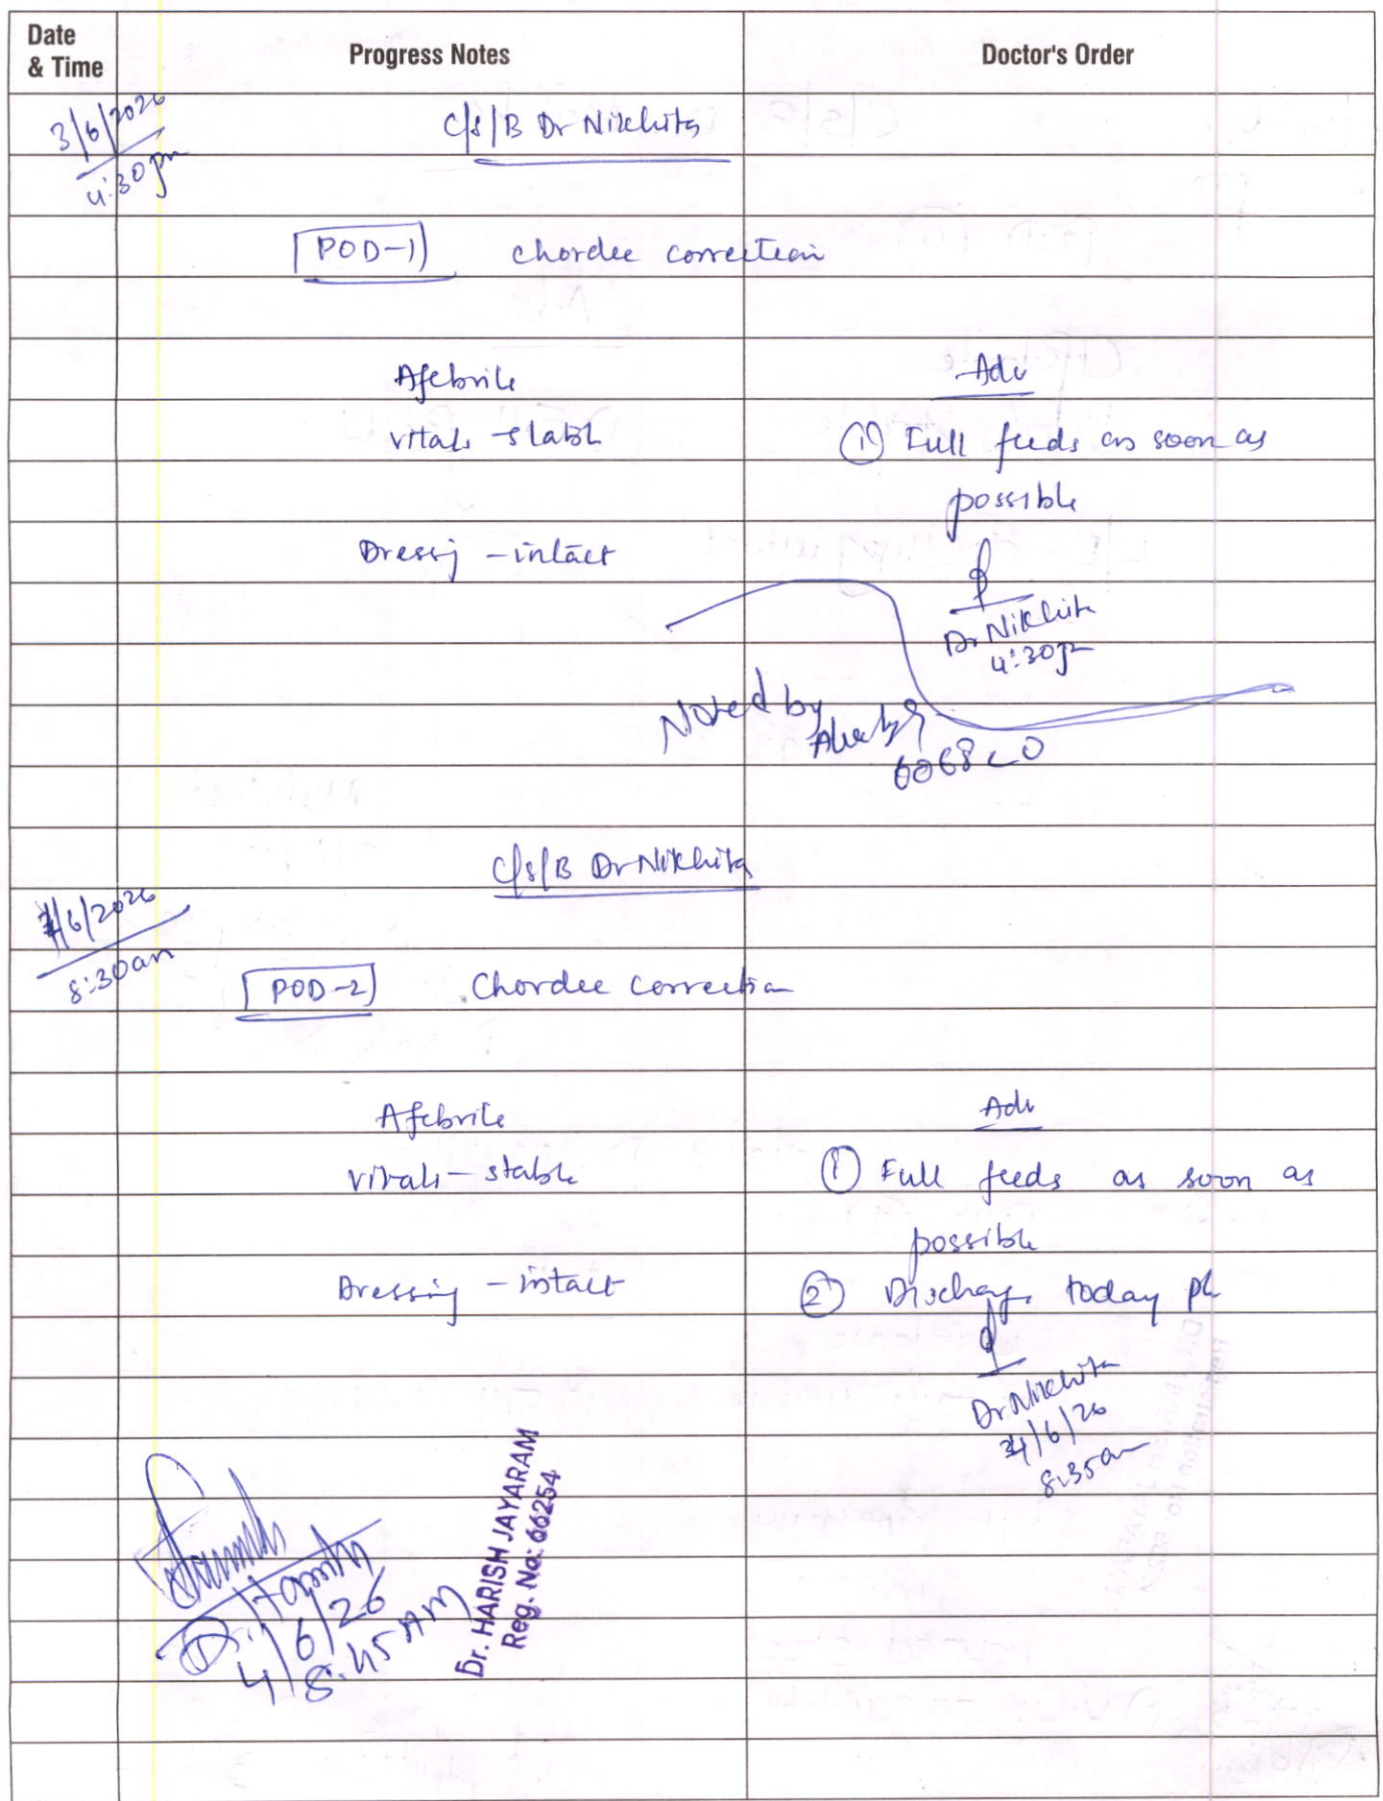 Date & Time
Progress Notes
Doctor's Order
3/6/2026
4:30pm
C/s/B Dr Nikhita
POD-1 chordee correction
Afebrile
Adv
vitals - stable
① Full feeds as soon as
possible
Dressing - intact
Dr Nikhita
4:30pm
Noted by
6068
C/s/B Dr Nikhita
4/6/2026
8:30am
POD-2 Chordee correction
Afebrile
Adv
vitals - stable
① Full feeds as soon as
possible
Dressing - intact
② Discharge today pl
Dr Nikhita
4/6/26
8:35am
Dr. HARISH JAYARAM
Reg. No: 66254
4/6/26
8:45 AM